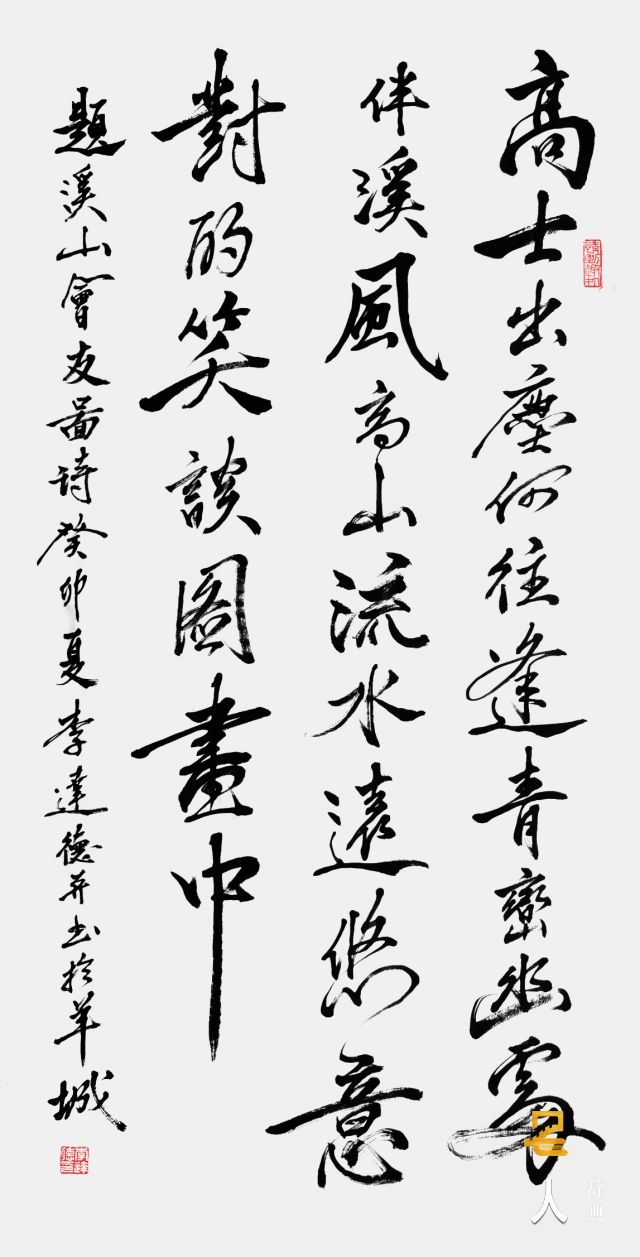 高士出塵何往逢青巒幽處
伴溪風高山流水遠悠意
對酌笑談图畫中
題溪山會友啚诗癸卯夏李達德并书於羊城
粤人
辞典